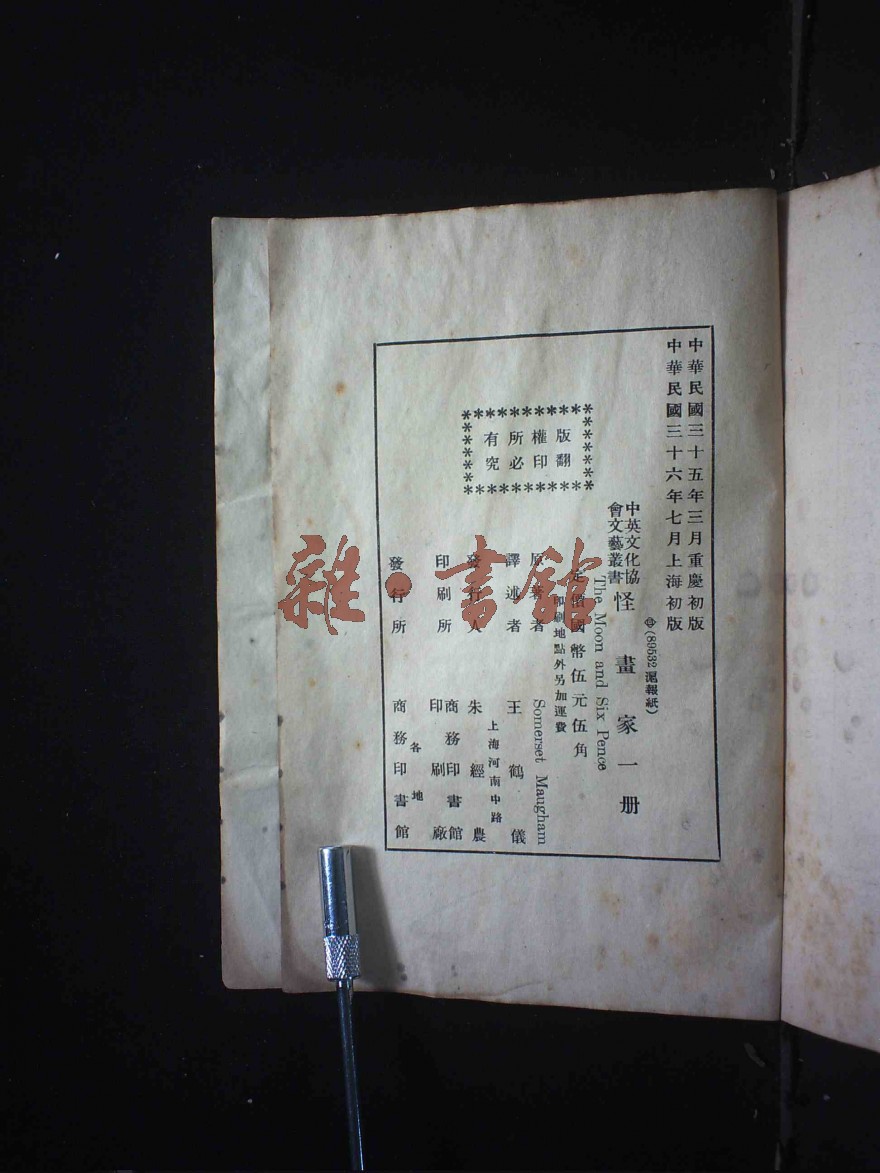 中華民國三十五年三月重慶初版
中華民國三十六年七月上海初版
(89532 滬報紙)
中英文化協會文藝叢書
怪畫家一册
The Moon and Six Pence
定價國幣伍元伍角
印刷地點外另加運費
版權所有
翻印必究
原著者 Somerset Maugham
譯述者 王鶴儀
上海河南中路
發行人 朱經農
印刷所 商務印書館印刷廠
各地
發行所 商務印書館
雜·書館